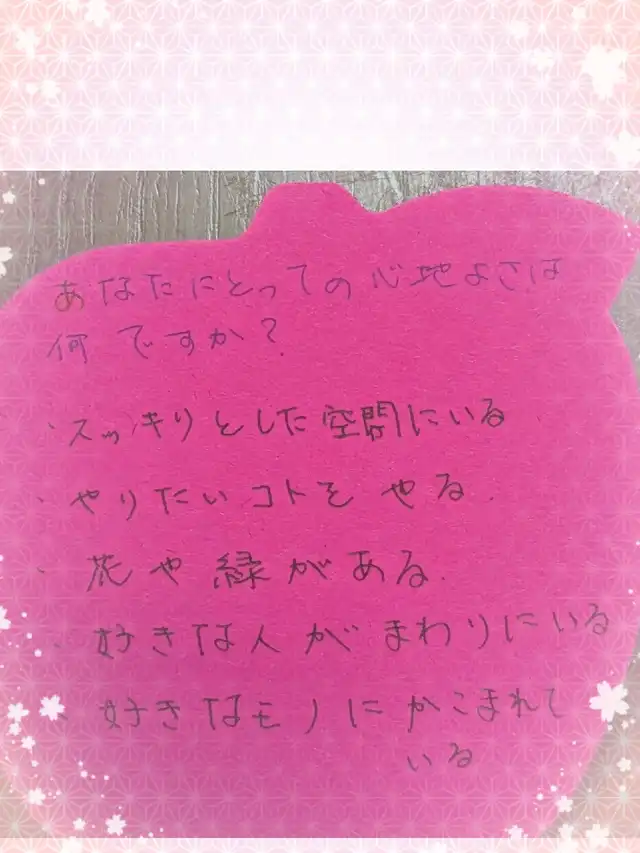 あなたにとっての心地よさは
何ですか?
・スッキリとした空間にいる
・やりたいコトを やる.
・花や緑がある.
・好きな人が まわりにいる
・好きなモノに かこまれて
いる